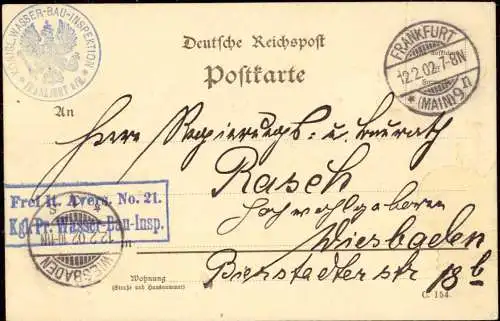 KÖNIGL. WASSER-BAU-INSPEKTION
FRANKFURT a/M.
Deutsche Reichspost
Postkarte
FRANKFURT
12.2.02.7-8N
* (MAIN) 9n
An
Herrn Regierungs- u. Baurath
Rasch
Hochwohlgeboren
Frei lt. Avers. No. 21.
Kgl. Pr. Wasser-Bau-Insp.
WIESBADEN
Wiesbaden
Bierstadterstr 18b
Wohnung
(Straße und Hausnummer)
C. 154.